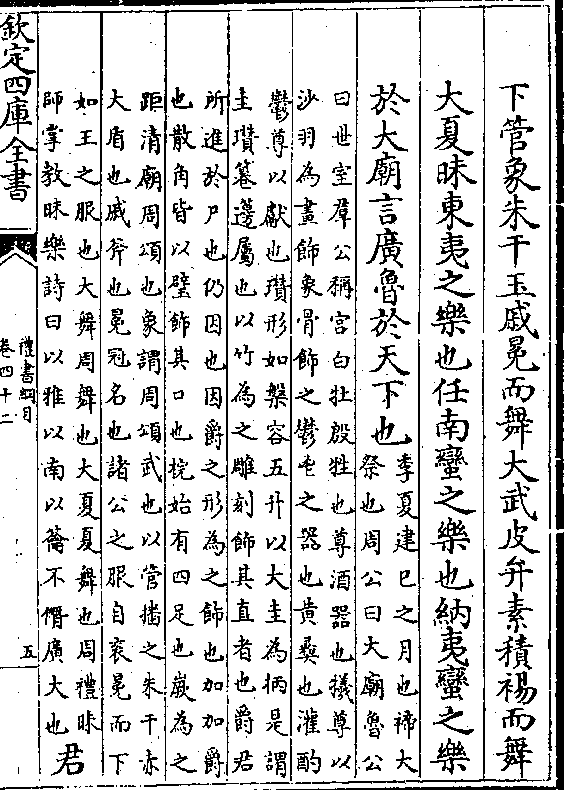 下管象朱干玉戚冕而舞大武皮弁素積裼而舞
大夏昧東夷之樂也任南蠻之樂也納夷蠻之樂
於大廟言廣魯於天下也
季夏建巳之月也禘大
祭也周公曰大廟魯公
曰世室羣公稱宫白牡殷牲也尊酒器也犧尊以
沙羽為畫飾象骨飾之鬱鬯之器也黄彝也灌酌
鬱尊以獻也瓚形如槃容五升以大圭為柄是謂
圭瓚篹籩屬也以竹為之雕刻飾其直者也爵君
所進於尸也仍因也因爵之形為之飾也加加爵
也散角皆以璧飾其口也梡始有四足也嶡為之
距清廟周頌也象謂周頌武也以管播之朱干赤
大盾也戚斧也冕冠名也諸公之服自衮冕而下
如王之服也大舞周舞也大夏夏舞也周禮昧
師掌教昧樂詩曰以雅以南以籥不僭廣大也
君
欽定四庫全書
禮書綱目
卷四十二
五